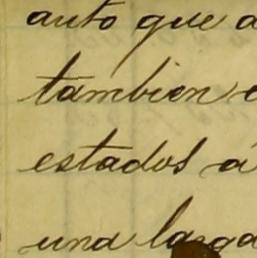 auto que a
tambien e
estados á
una larga